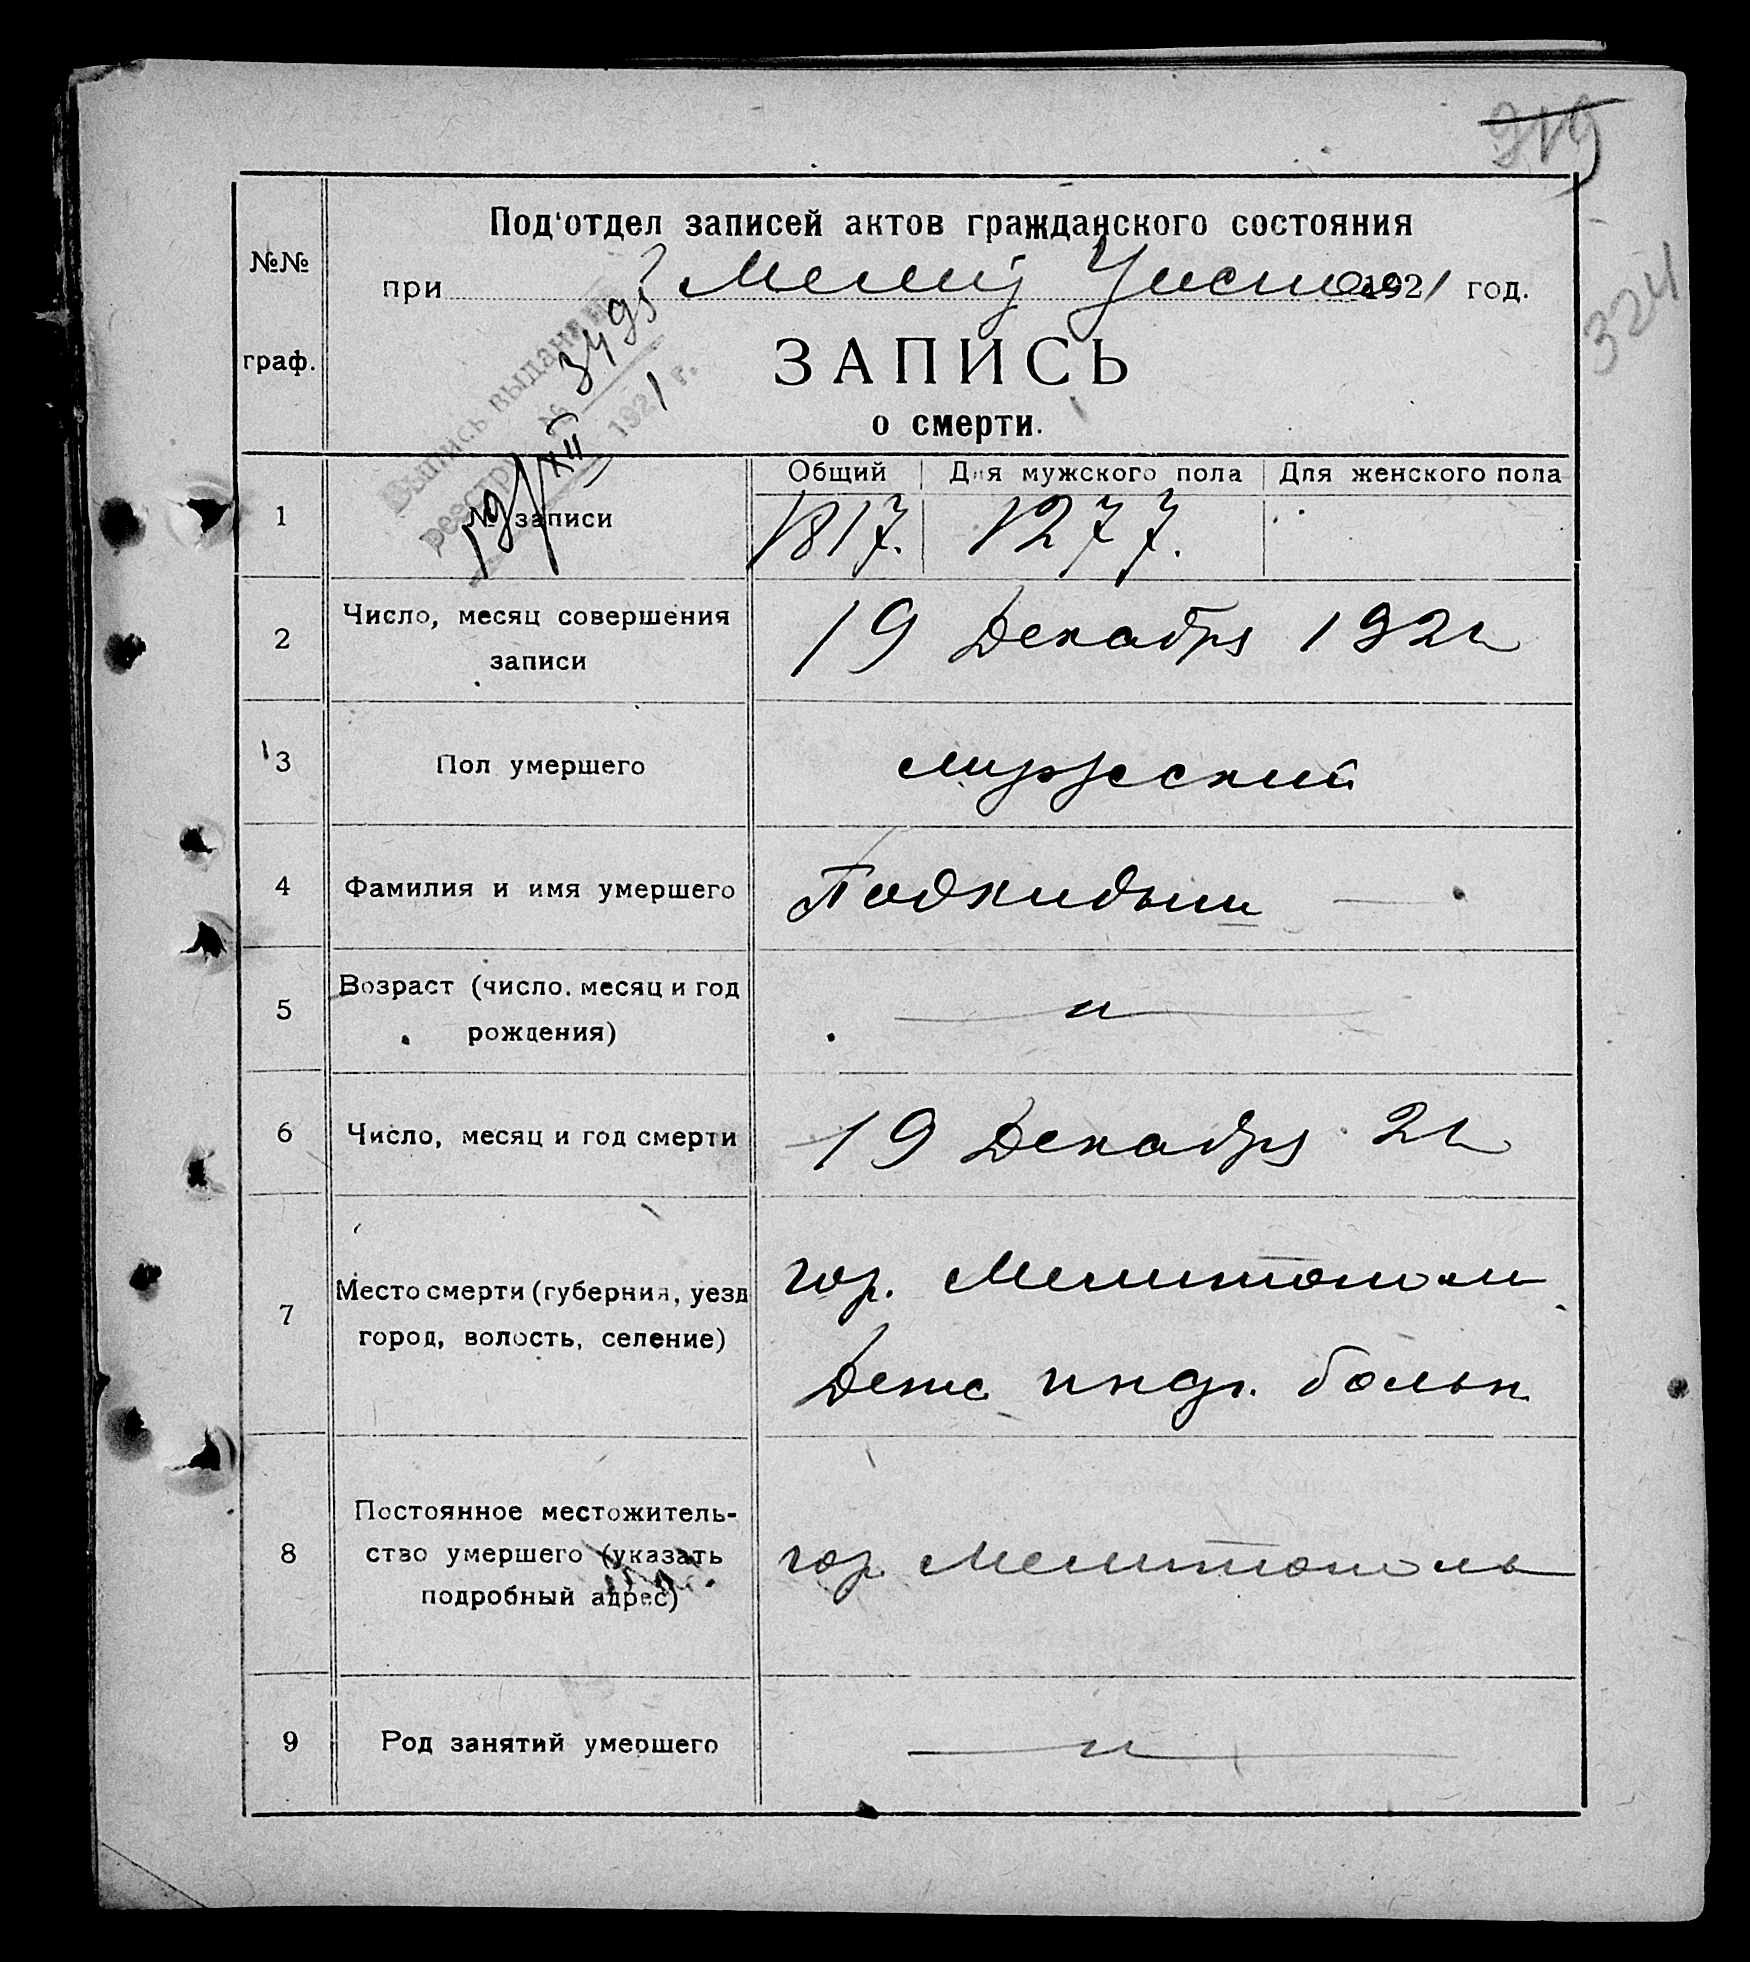 319
324
Под'отдел записей актов гражданского состояния
№№
граф.
при Мелит Уисполк 1921 год.
ЗАПИСЬ
о смерти.
Выпись выдана
реестр № 3495
19/XII 1921 г.
Общий Для мужского пола Для женского пола
1 № записи 1817. 1277.
2 Число, месяц совершения
записи
19 Декабря 1921
3 Пол умершего мужеский
4 Фамилия и имя умершего Подкидыш —
5 Возраст (число, месяц и год
рождения)
— „ —
6 Число, месяц и год смерти 19 Декабря 21
7 Место смерти (губерния, уезд
город, волость, селение)
гор. Мелитополь
Детс больн.
8 Постоянное местожитель-
ство умершего (указать
подробный адрес)
гор Мелитополь
9 Род занятий умершего — „ —